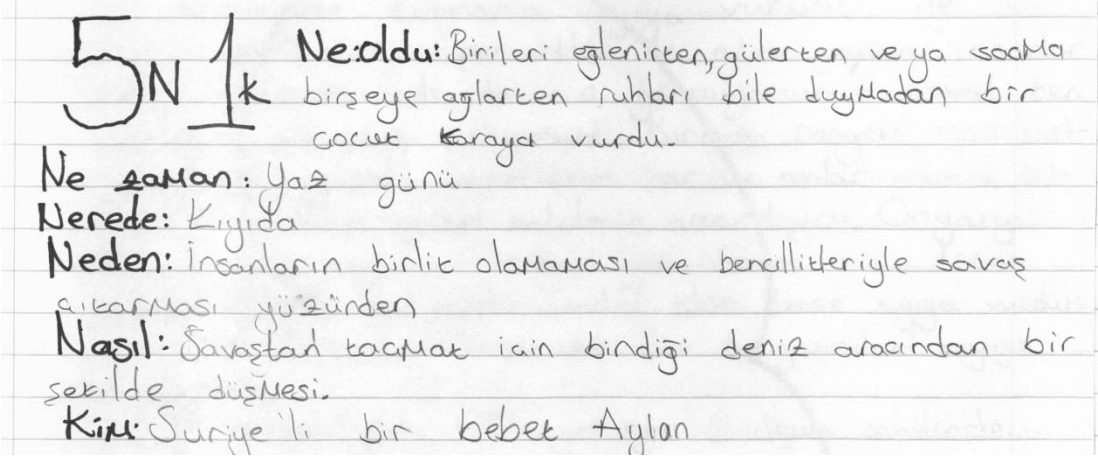 5N 1K
Ne:oldu: Birileri eğlenirken, gülerken ve ya saçma
birşeye ağlarken ruhları bile duymadan bir
çocuk karaya vurdu.
Ne zaman: Yaz günü
Nerede: Kıyıda
Neden: İnsanların birlik olamaması ve bencillikleriyle savaş
çıkarması yüzünden
Nasıl: Savaştan kaçmak için bindiği deniz aracından bir
şekilde düşmesi.
Kim: Suriye'li bir bebek Aylan